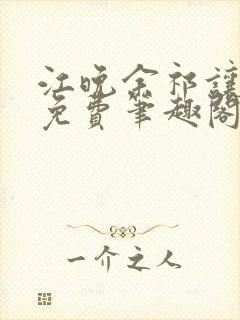 江晚余祁让
免费笔趣阁
一介之人